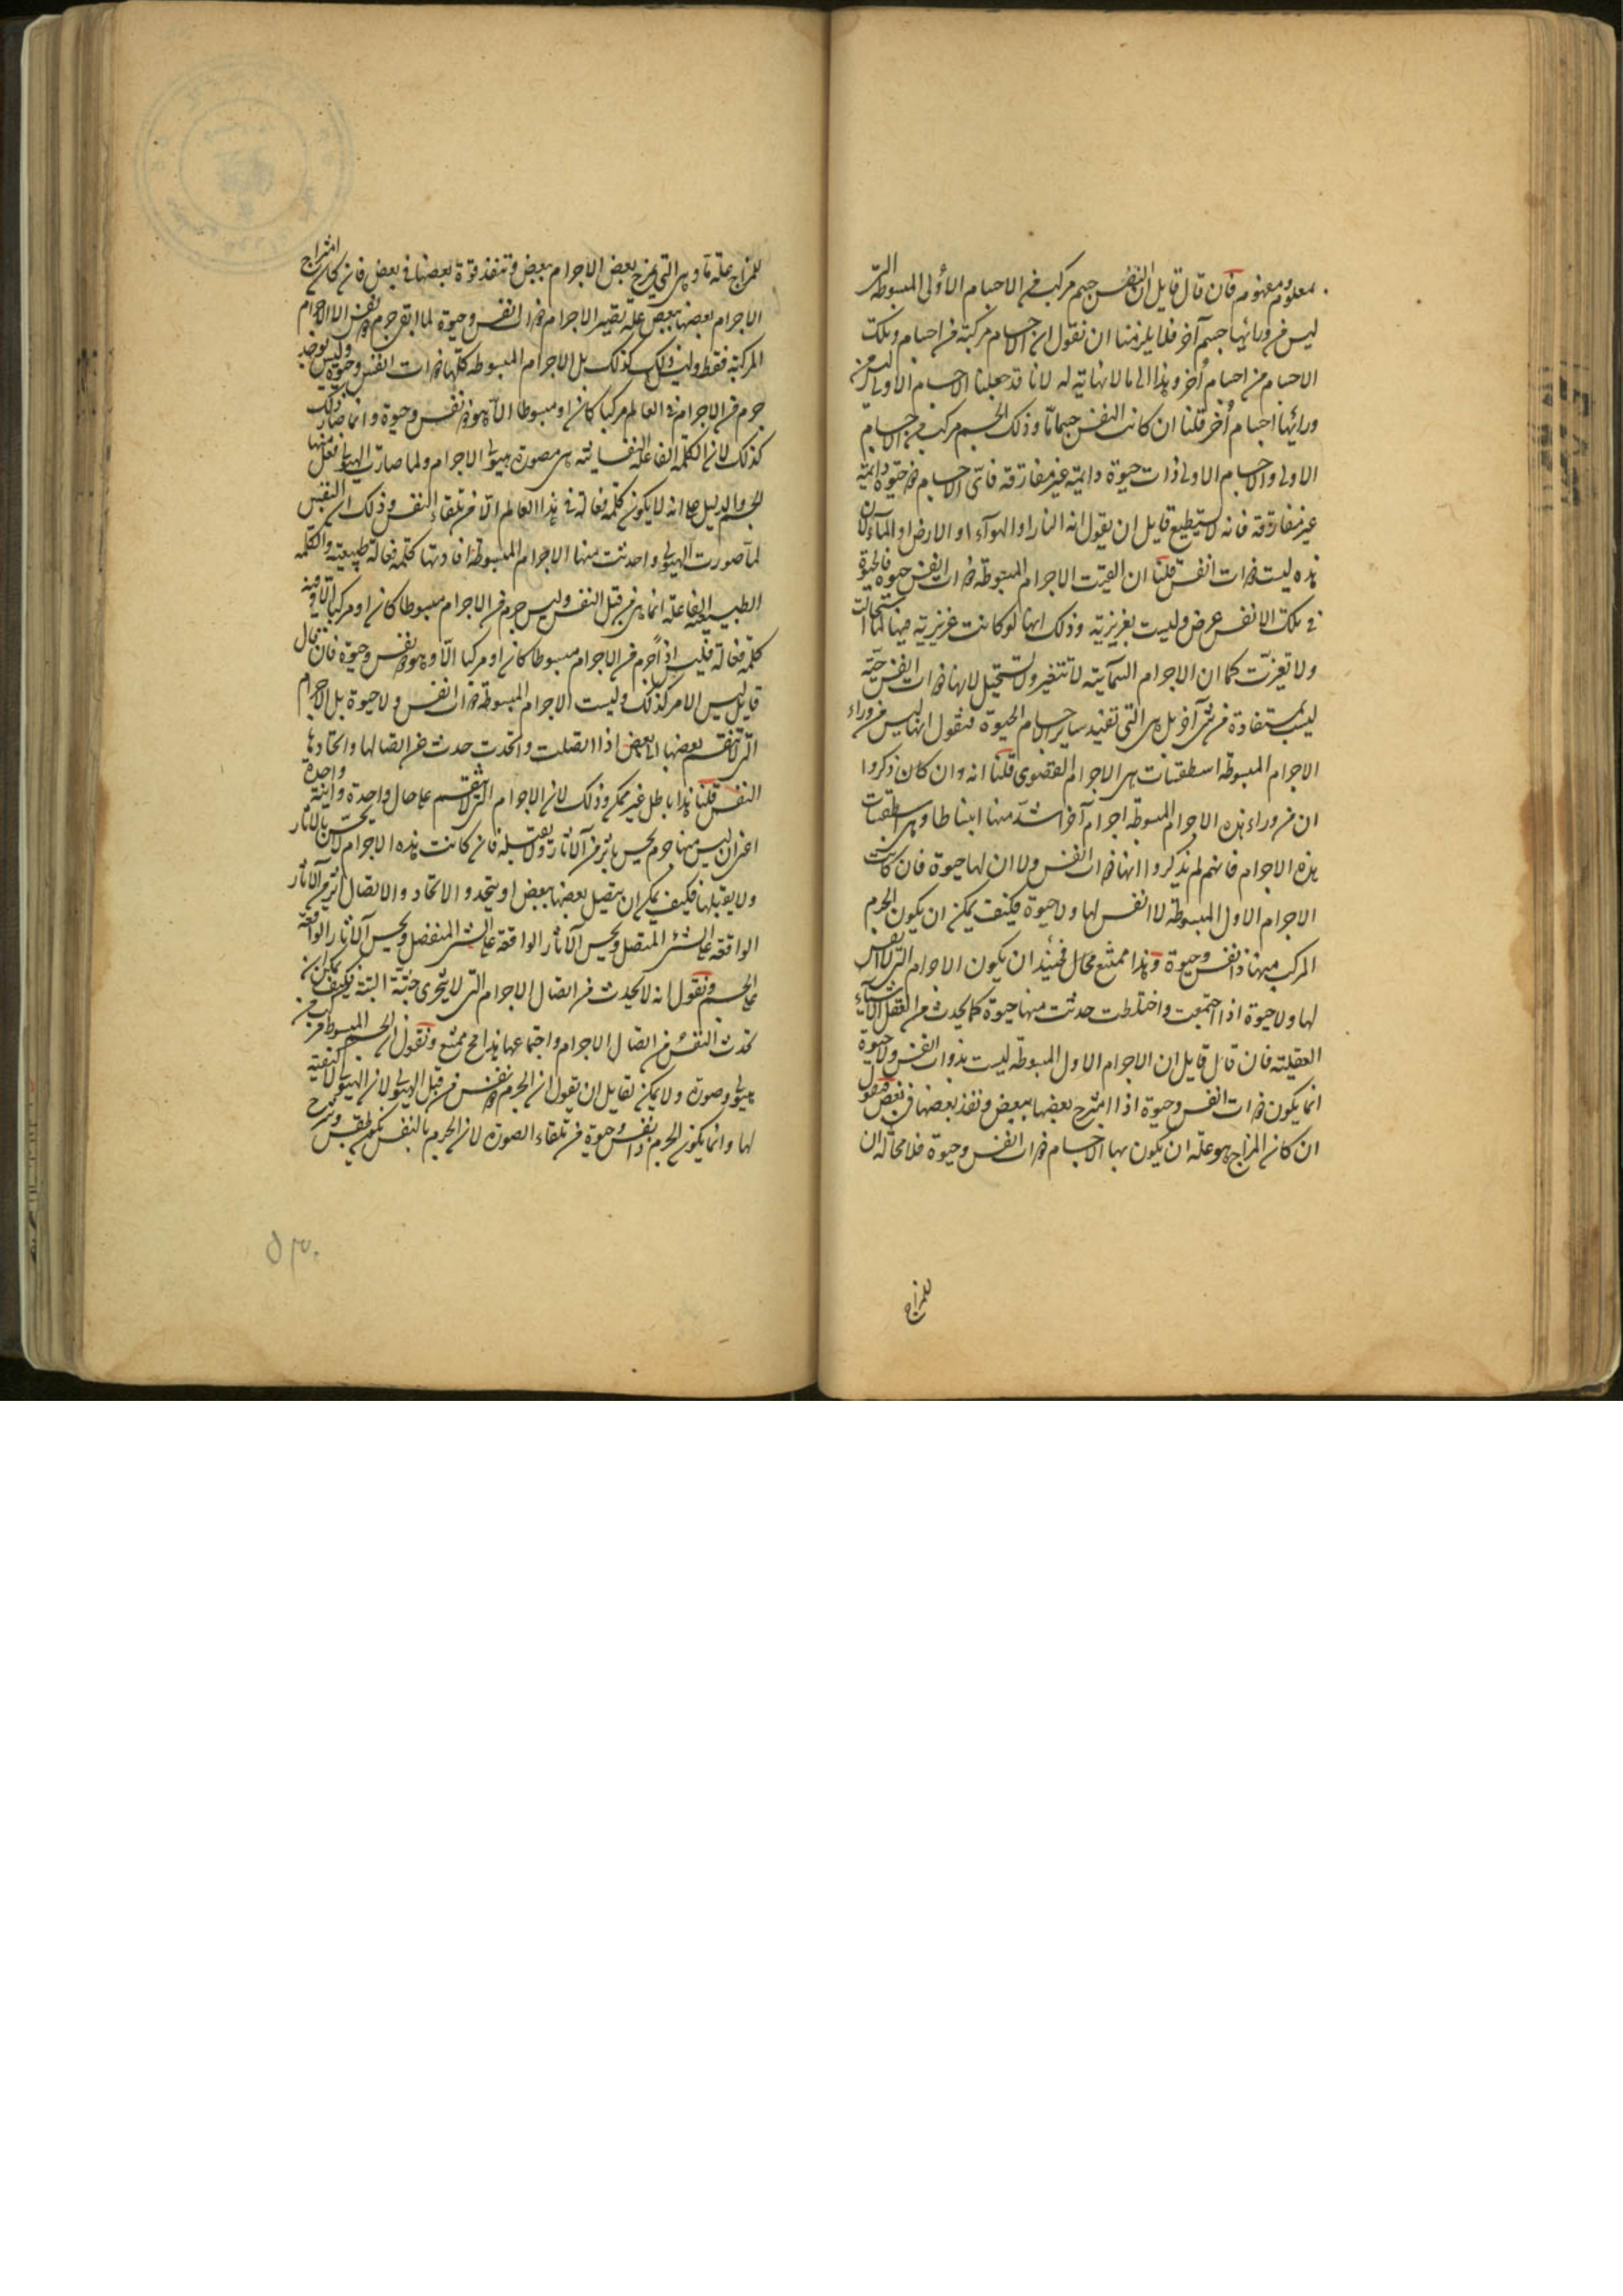 معلوم ومفهوم فان قال قايل ان النفس جسم مركب من الاجسام الأولى المبسوطة التى
ليس من ورائها جسم آخر فلا يلزمنا ان نقول ان الاجسام مركبة من اجسام وتلك
الاجسام من اجسام أخر وهذا الى ما لا نهاية له لانا قد جعلنا الاجسام الاولى ليس من
ورائها اجسام أخر قلنا ان كانت النفس جسما ما وذلك الجسم مركب من الاجسام
الاولى والاجسام الاولى ذات حيوة دائمة غير مفارقة فاى الاجسام ذو حيوة دائمة
غير مفارقة فانه لا يستطيع قايل ان يقول انه النار او الهوآء او الارض او المآء لان
هذه ليست ذوات انفس قلنا ان الفيت الاجرام المبسوطة ذوات انفس حيوة فالحيوة
فى تلك الانفس عرض وليست بغريزية وذلك انها لو كانت غريزية فيها لما استحالت
ولا تغيرت كما ان الاجرام السمآئية لا تتغير ولا تستحيل لانها ذوات انفس حية
ليست بمستفادة من شئ آخر بل هى التى تفيد ساير الاجسام الحيوة فنقول انها ليس من وراء
الاجرام المبسوطة اسطقسات هى الاجرام القصوى قلنا انه وان كان ذكروا
ان من وراء هذه الاجرام المبسوطة اجرام آخر اشد منها انبساطا وهى اسطقسات
هذه الاجرام فانهم لم يذكروا انها ذوات انفس ولا ان لها حيوة فان كانت
الاجرام الاول المبسوطة لا انفس لها ولا حيوة فكيف يمكن ان يكون الجرم
المركب منها ذا نفس وحيوة وهذا ممتنع محال فحينئذ ان يكون الاجرام التى لا انفس
لها ولا حيوة اذا اجتمعت واختلطت حدثت منها حيوة كما يحدث من العقل الاشياء
العقلية فان قال قايل ان الاجرام الاول المبسوطة ليست بذوات انفس ولا حيوة
انما يكون ذوات انفس وحيوة اذا امتزج بعضها ببعض ونفذ بعضها فى بعض فنقول
ان كان المزاج هو علة ان يكون بها الاجسام ذوات انفس وحيوة فلا محالة ان
للمزاج
للمزاج علة ما وهى التى يمزج بعض الاجرام ببعض وتنفذ قوة بعضها فى بعض فان كان امتزاج
الاجرام بعضها ببعض علة تصيير الاجرام ذوات انفس وحيوة لما القى جرم ذو نفس الا الاجرام
المركبة فقط وليس ذلك كذلك بل الاجرام المبسوطة كلها ذوات انفس وحيوة وليس يوجد
جرم من الاجرام فى العالم مركبا كان او مبسوطا الا وهو ذو نفس وحيوة وانما صار ذلك
كذلك لان الكلمة الفاعلة النفسانية هى مصورة هيولى الاجرام ولما صارت الهيولى فعل منها
الجسم والدليل على انه لا يكون كلمة فعالة فى هذا العالم الا من تلقاء النفس وذلك ان النفس
لما صورت الهيولى واحدثت منها الاجرام المبسوطة افادتها كلمة فعالة طبيعية والكلمة
الطبيعية الفاعلة انما هى من قبل النفس وليس جرم من الاجرام مبسوطا كان او مركبا الا وفيه
كلمة فعالة فليس اذا جرم من الاجرام مبسوطا كان او مركبا الا وهو ذو نفس وحيوة فان قال
قايل ليس الامر كذلك وليست الاجرام المبسوطة ذوات انفس ولا حيوة بل الاجرام
التى لا تنقسم بعضها الى بعض اذا اتصلت واتحدت حدث من اتصالها واتحادها
النفس قلنا هذا باطل غير ممكن وذلك لان الاجرام التى لا تنقسم على حال واحدة واحدة
اعنى ان ليس منها جرم يحس باثر من الآثار ولا يقبله فان كانت هذه الاجرام لا تحس بالآثار
ولا يقبلها فكيف يمكن ان يتصل بعضها ببعض او يتحد والاتحاد والاتصال اثر من الآثار
الواقعة على الشئ المتصل ويحس الآثار الواقعة على الشئ المنفصل ويحس الآثار الواقعة
على الجسم ونقول انه لا يحدث من اتصال الاجرام التى لا يتجزى جثة البتة فكيف يمكن ان
تحدث النفس من اتصال الاجرام واجتماعها هذا محال ممتنع ونقول ان الجسم المبسوط مركب من
هيولى وصورة ولا يمكن لقايل ان يقول ان الجرم ذو نفس من قبل الهيولى لان الهيولى لا كيفية
لها وانما يكون الجرم ذا نفس وحيوة من تلقاء الصورة لان الجرم بالنفس يكون ذا طقس وشرح